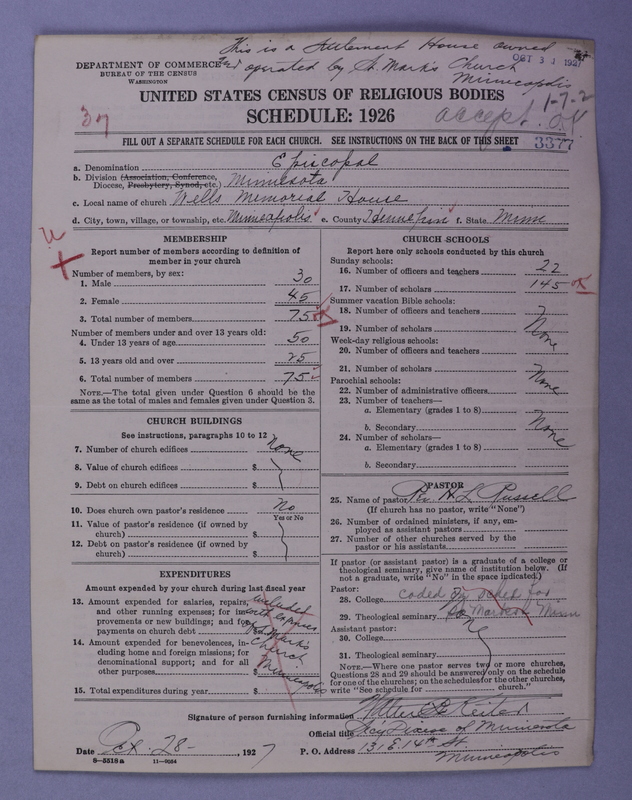 This is a Settlement House owned
and operated by St. Mark's Church
Minneapolis
OCT 31 1927
DEPARTMENT OF COMMERCE
BUREAU OF THE CENSUS
WASHINGTON
1-7-2
UNITED STATES CENSUS OF RELIGIOUS BODIES
37
SCHEDULE: 1926
accept.
FILL OUT A SEPARATE SCHEDULE FOR EACH CHURCH. SEE INSTRUCTIONS ON THE BACK OF THIS SHEET
3377
a. Denomination Episcopal
b. Division (Association, Conference, Diocese, Presbytery, Synod, etc.) Minnesota
c. Local name of church Wells Memorial House
d. City, town, village, or township, etc. Minneapolis e. County Hennepin f. State Minn
MEMBERSHIP
Report number of members according to definition of
member in your church
Number of members, by sex:
1. Male 30
2. Female 45
3. Total number of members 75
Number of members under and over 13 years old:
4. Under 13 years of age 50
5. 13 years old and over 25
6. Total number of members 75
NOTE.—The total given under Question 6 should be the
same as the total of males and females given under Question 3.
CHURCH BUILDINGS
See instructions, paragraphs 10 to 12
7. Number of church edifices None
8. Value of church edifices $
9. Debt on church edifices $
10. Does church own pastor's residence? No
Yes or No
11. Value of pastor's residence (if owned by
church) $
12. Debt on pastor's residence (if owned by
church) $
EXPENDITURES
Amount expended by your church during last fiscal year
13. Amount expended for salaries, repairs,
and other running expenses; for im-
provements or new buildings; and for
payments on church debt
14. Amount expended for benevolences, in-
cluding home and foreign missions; for
denominational support; and for all
other purposes $
included
with expenses
of St Marks
Church
Minneapolis
15. Total expenditures during year $
CHURCH SCHOOLS
Report here only schools conducted by this church
Sunday schools:
16. Number of officers and teachers 22
17. Number of scholars 145
Summer vacation Bible schools:
18. Number of officers and teachers
19. Number of scholars None
Week-day religious schools:
20. Number of officers and teachers
21. Number of scholars None
Parochial schools:
22. Number of administrative officers
23. Number of teachers—
a. Elementary (grades 1 to 8)
b. Secondary None
24. Number of scholars—
a. Elementary (grades 1 to 8)
b. Secondary
PASTOR
25. Name of pastor Rev H L Russell
(If church has no pastor, write "None")
26. Number of ordained ministers, if any, em-
ployed as assistant pastors
27. Number of other churches served by the
pastor or his assistants
If pastor (or assistant pastor) is a graduate of a college or
theological seminary, give name of institution below. (If
not a graduate, write "No" in the space indicated.)
Pastor:
28. College coded on sched for
29. Theological seminary
Assistant pastor:
30. College
31. Theological seminary
NOTE.—Where one pastor serves two or more churches,
Questions 28 and 29 should be answered only on the schedule
for one of the churches; on the schedules for the other churches,
write "See schedule for church."
Signature of person furnishing information
Official title
Date Oct. 28- , 1927
P. O. Address 131 E 14th St
Minneapolis
8—5518 a 11—9054